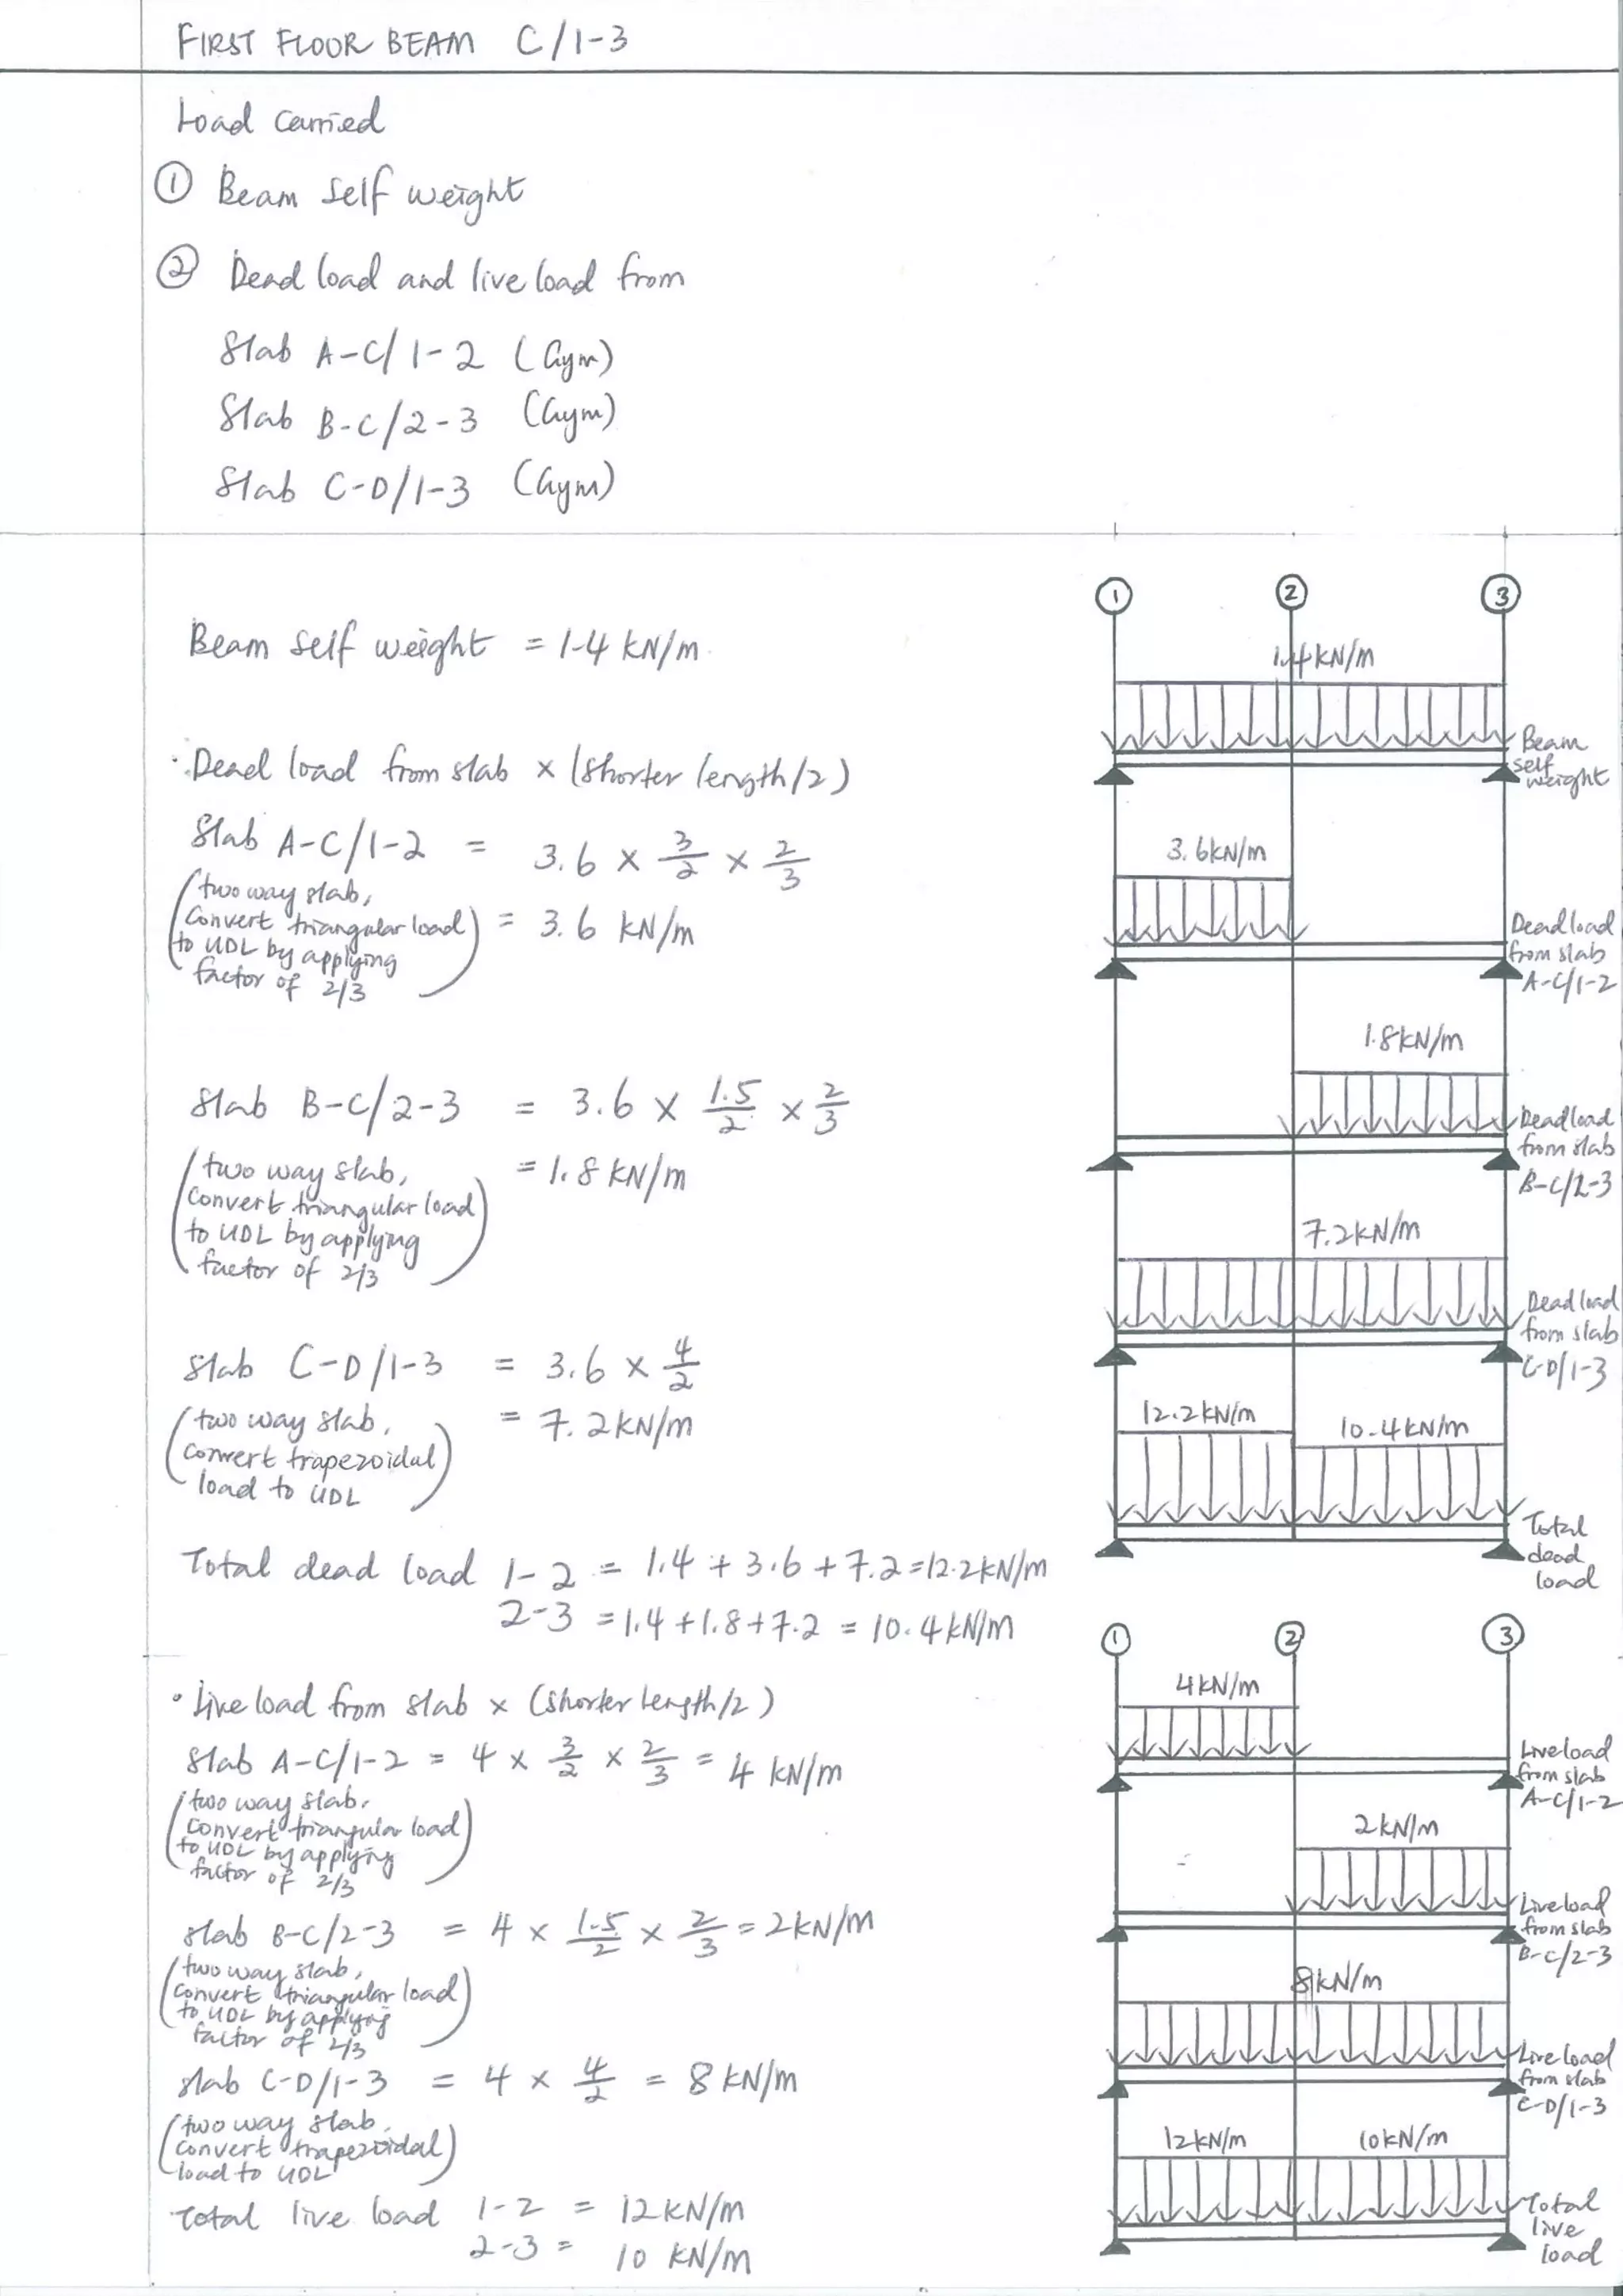 FIRST FLOOR BEAM C/1-3
Load carried
① Beam self weight
② Dead load and live load from
Slab A-C/1-2 (Gym)
Slab B-C/2-3 (Gym)
Slab C-D/1-3 (Gym)
Beam self weight = 1.4 kN/m
· Dead load from slab × (shorter length/2)
Slab A-C/1-2 = 3.6 × 3/2 × 2/3
(two way slab,
convert triangular load
to UDL by applying
factor of 2/3)
= 3.6 kN/m
Slab B-C/2-3 = 3.6 × 1.5/2 × 2/3
(two way slab,
convert triangular load
to UDL by applying
factor of 2/3)
= 1.8 kN/m
Slab C-D/1-3 = 3.6 × 4/2
(two way slab,
convert trapezoidal
load to UDL)
= 7.2 kN/m
Total dead load 1-2 = 1.4 + 3.6 + 7.2 = 12.2 kN/m
2-3 = 1.4 + 1.8 + 7.2 = 10.4 kN/m
1 2 3
1.4 kN/m
Beam
self
weight
3.6 kN/m
Dead load
from slab
A-C/1-2
1.8 kN/m
Dead load
from slab
B-C/2-3
7.2 kN/m
Dead load
from slab
C-D/1-3
12.2 kN/m 10.4 kN/m
Total
dead
load
· Live load from slab × (shorter length/2)
Slab A-C/1-2 = 4 × 3/2 × 2/3 = 4 kN/m
(two way slab,
convert triangular load
to UDL by applying
factor of 2/3)
Slab B-C/2-3 = 4 × 1.5/2 × 2/3 = 2 kN/m
(two way slab,
convert triangular load
to UDL by applying
factor of 2/3)
Slab C-D/1-3 = 4 × 4/2 = 8 kN/m
(two way slab,
convert trapezoidal
load to UDL)
Total live load 1-2 = 12 kN/m
2-3 = 10 kN/m
1 2 3
4 kN/m
Live load
from slab
A-C/1-2
2 kN/m
Live load
from slab
B-C/2-3
8 kN/m
Live load
from slab
C-D/1-3
12 kN/m 10 kN/m
Total
live
load